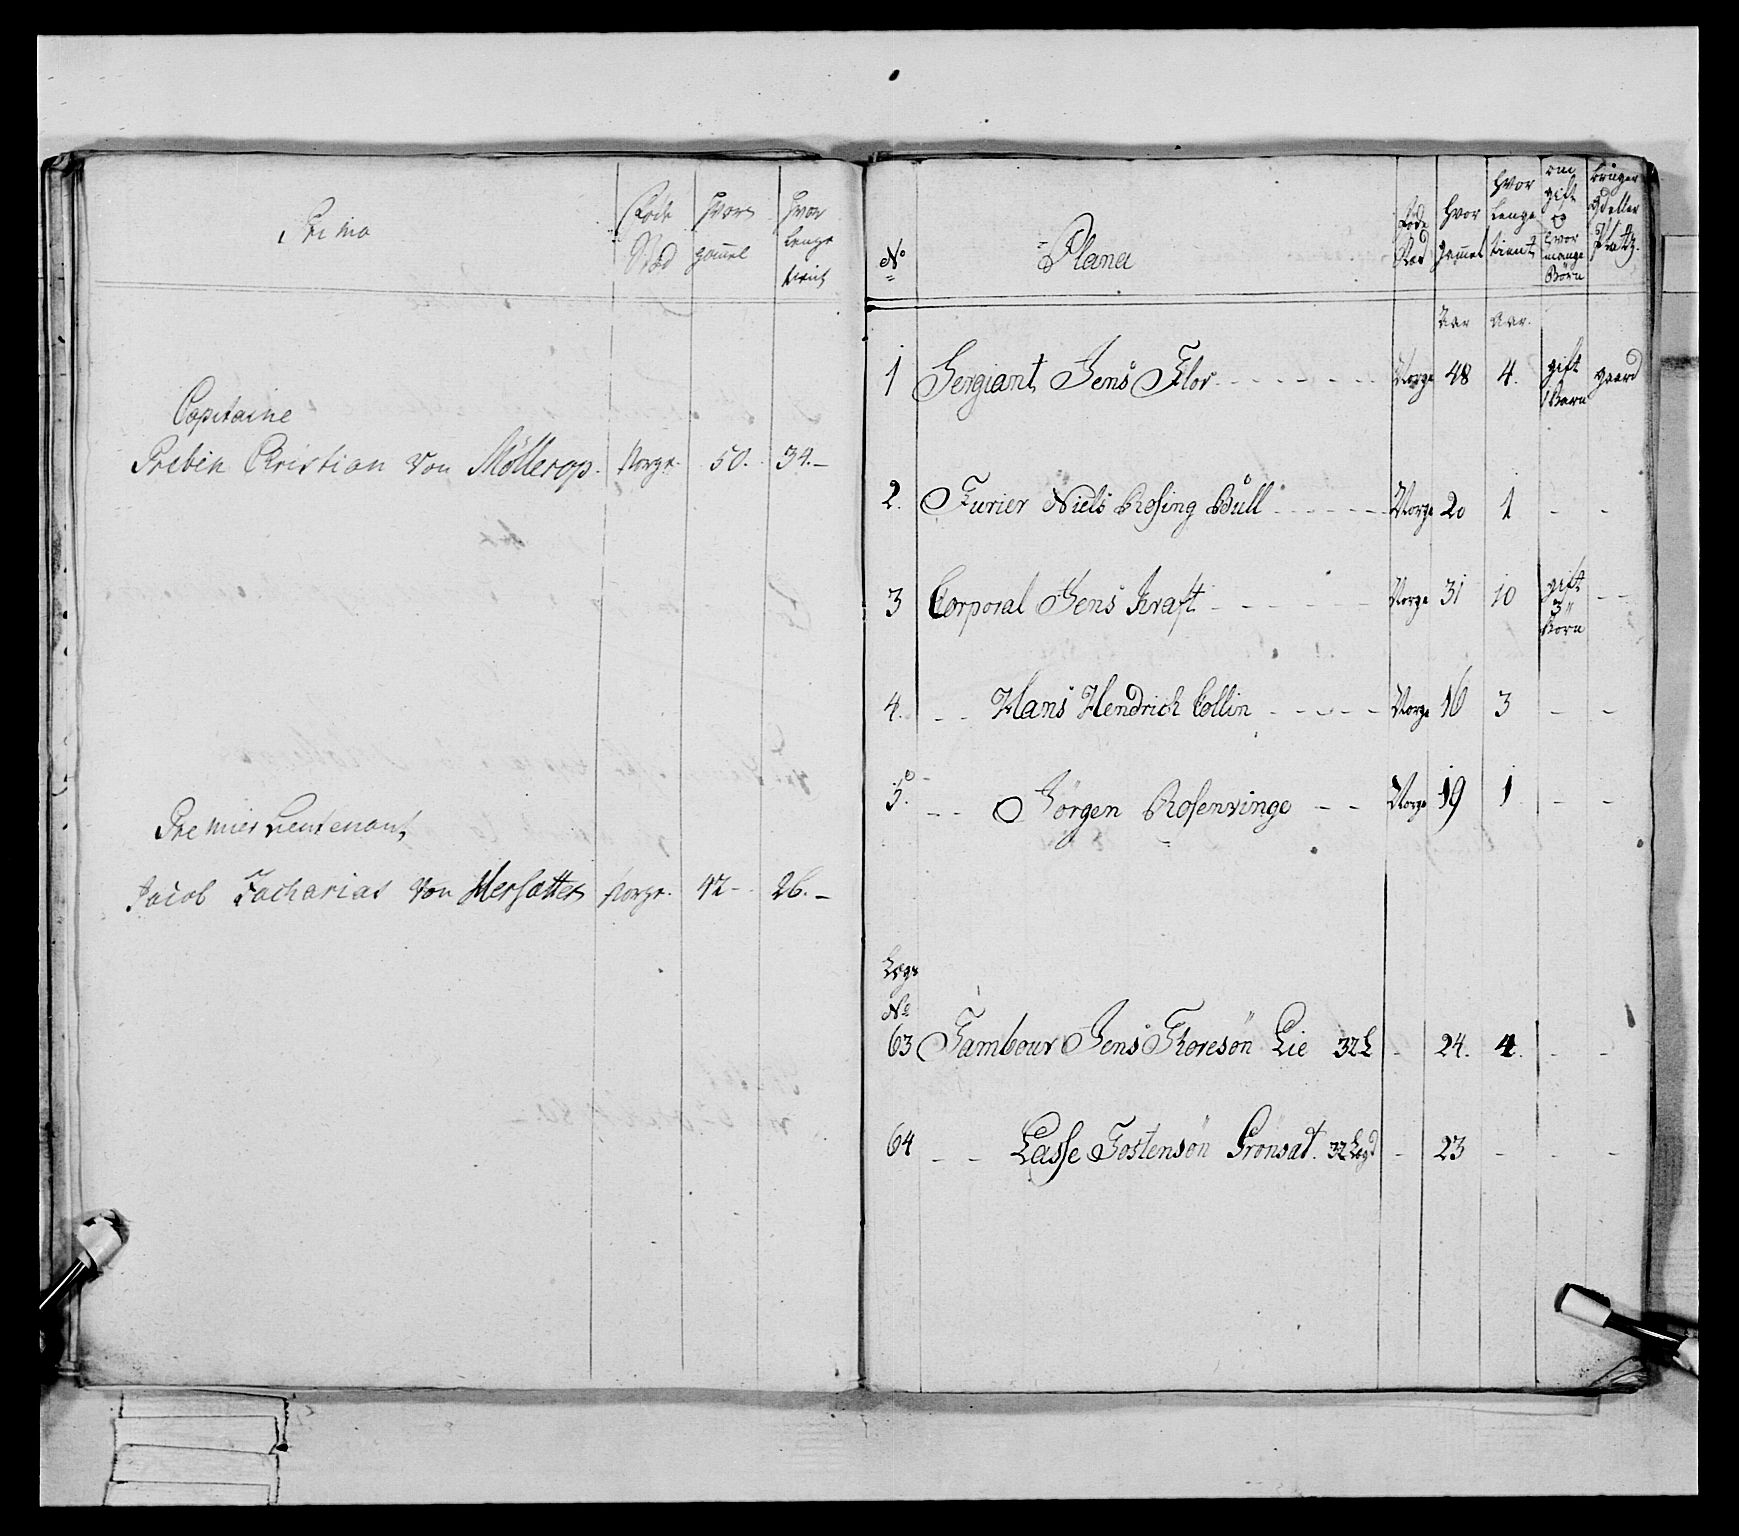 Prima
Føde
Stæd
Hvor
gamel
Hvor
lenge
tient
Capitaine
Preben Christian von Møllerop. Norge. 50. 34.
Premier Lieutenant
Jacob Zacharias von Mersatter Norge. 42 26.
No
Plana
Føde
Stæd
Hvor
gamel
Hvor
lenge
tient
om
gift
og
hvor
mange
Børn
bruger
gd eller
Platz.
Aar Aar.
1 Sergiant Jens Flor Norge 48 4. gift
1 Barn gaard
2. Furier Niels Rosing Bull Norge 20 1 - -
3 Corporal Jens Kraft Norge 31 10 gift
3
Børn - -
4. - - Hans Hendrich Collin Norge 16 3 - -
5. - - Jørgen Rosenvinge - - Norge 19 1 - -
Legs
No
63 Tambour Jens Thoresøn Lie 32 L - 24. 4. - -
64 - - Lasse Tostensøn Grønsat. 32 Legd - 23 - - -